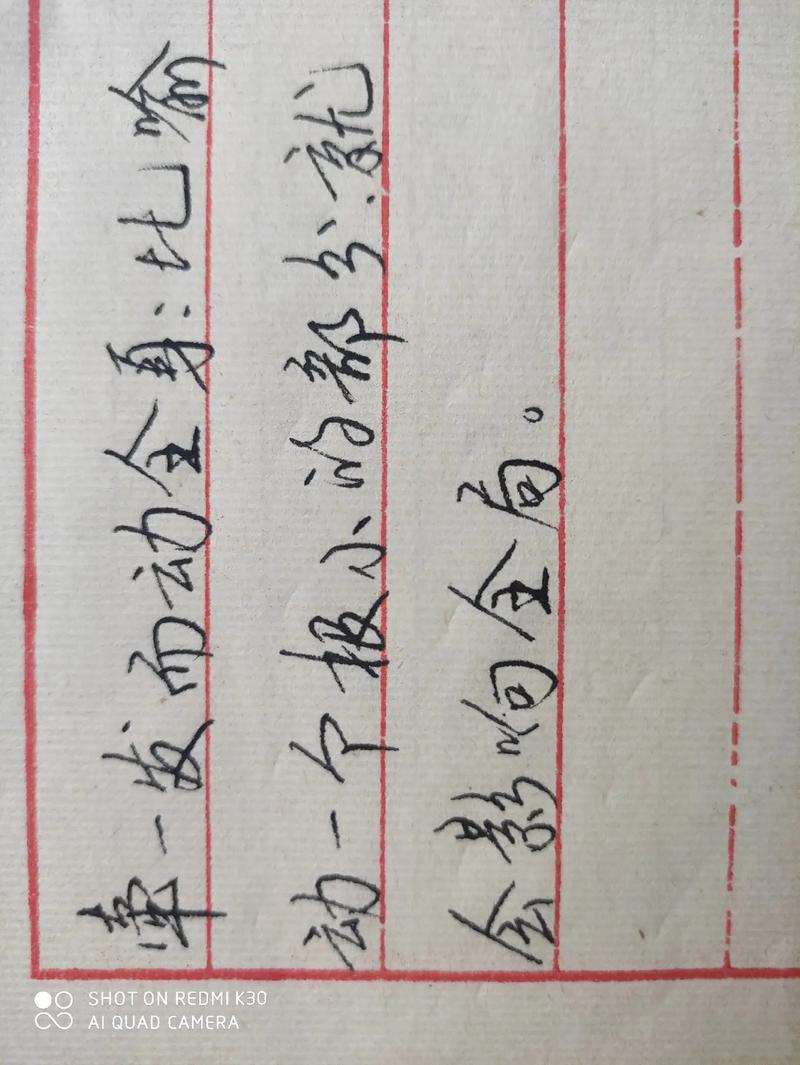 牵一发而动全身:比喻
动一个极小的部分就
会影响全局。
SHOT ON REDMI K30
AI QUAD CAMERA